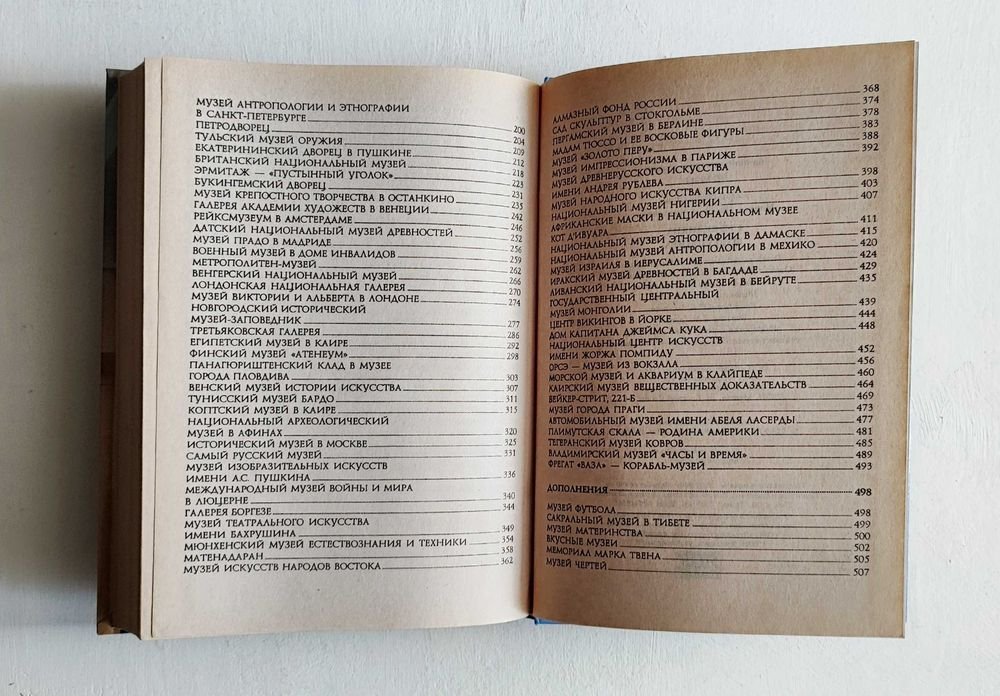 МУЗЕЙ АНТРОПОЛОГИИ И ЭТНОГРАФИИ
В САНКТ-ПЕТЕРБУРГЕ 200
ПЕТРОДВОРЕЦ 204
ТУЛЬСКИЙ МУЗЕЙ ОРУЖИЯ 209
ЕКАТЕРИНИНСКИЙ ДВОРЕЦ В ПУШКИНЕ 212
БРИТАНСКИЙ НАЦИОНАЛЬНЫЙ МУЗЕЙ 218
ЭРМИТАЖ — «ПУСТЫННЫЙ УГОЛОК» 223
БУКИНГЕМСКИЙ ДВОРЕЦ 231
МУЗЕЙ КРЕПОСТНОГО ТВОРЧЕСТВА В ОСТАНКИНО 235
ГАЛЕРЕЯ АКАДЕМИИ ХУДОЖЕСТВ В ВЕНЕЦИИ 242
РЕЙКСМУЗЕУМ В АМСТЕРДАМЕ 246
ДАТСКИЙ НАЦИОНАЛЬНЫЙ МУЗЕЙ ДРЕВНОСТЕЙ 252
МУЗЕЙ ПРАДО В МАДРИДЕ 256
ВОЕННЫЙ МУЗЕЙ В ДОМЕ ИНВАЛИДОВ 259
МЕТРОПОЛИТЕН-МУЗЕЙ 262
ВЕНГЕРСКИЙ НАЦИОНАЛЬНЫЙ МУЗЕЙ 266
ЛОНДОНСКАЯ НАЦИОНАЛЬНАЯ ГАЛЕРЕЯ 270
МУЗЕЙ ВИКТОРИИ И АЛЬБЕРТА В ЛОНДОНЕ 274
НОВГОРОДСКИЙ ИСТОРИЧЕСКИЙ
МУЗЕЙ-ЗАПОВЕДНИК 277
ТРЕТЬЯКОВСКАЯ ГАЛЕРЕЯ 286
ЕГИПЕТСКИЙ МУЗЕЙ В КАИРЕ 292
ФИНСКИЙ МУЗЕЙ «АТЕНЕУМ» 298
ПАНАГЮРИШТЕНСКИЙ КЛАД В МУЗЕЕ
ГОРОДА ПЛОВДИВА 303
ВЕНСКИЙ МУЗЕЙ ИСТОРИИ ИСКУССТВА 307
ТУНИССКИЙ МУЗЕЙ БАРДО 311
КОПТСКИЙ МУЗЕЙ В КАИРЕ 315
НАЦИОНАЛЬНЫЙ АРХЕОЛОГИЧЕСКИЙ
МУЗЕЙ В АФИНАХ 320
ИСТОРИЧЕСКИЙ МУЗЕЙ В МОСКВЕ 325
САМЫЙ РУССКИЙ МУЗЕЙ 331
МУЗЕЙ ИЗОБРАЗИТЕЛЬНЫХ ИСКУССТВ
ИМЕНИ А.С. ПУШКИНА 336
МЕЖДУНАРОДНЫЙ МУЗЕЙ ВОЙНЫ И МИРА
В ЛЮЦЕРНЕ 340
ГАЛЕРЕЯ БОРГЕЗЕ 344
МУЗЕЙ ТЕАТРАЛЬНОГО ИСКУССТВА
ИМЕНИ БАХРУШИНА 349
МЮНХЕНСКИЙ МУЗЕЙ ЕСТЕСТВОЗНАНИЯ И ТЕХНИКИ 354
МАТЕНАДАРАН 358
МУЗЕЙ ИСКУССТВ НАРОДОВ ВОСТОКА 362
АЛМАЗНЫЙ ФОНД РОССИИ 368
САД СКУЛЬПТУР В СТОКГОЛЬМЕ 374
ПЕРГАМСКИЙ МУЗЕЙ В БЕРЛИНЕ 378
МАДАМ ТЮССО И ЕЕ ВОСКОВЫЕ ФИГУРЫ 383
МУЗЕЙ «ЗОЛОТО ПЕРУ» 388
МУЗЕЙ ИМПРЕССИОНИЗМА В ПАРИЖЕ 392
МУЗЕЙ ДРЕВНЕРУССКОГО ИСКУССТВА
ИМЕНИ АНДРЕЯ РУБЛЕВА 398
МУЗЕЙ НАРОДНОГО ИСКУССТВА КИПРА 403
НАЦИОНАЛЬНЫЙ МУЗЕЙ НИГЕРИИ 407
АФРИКАНСКИЕ МАСКИ В НАЦИОНАЛЬНОМ МУЗЕЕ
КОТ Д'ИВУАРА 411
НАЦИОНАЛЬНЫЙ МУЗЕЙ ЭТНОГРАФИИ В ДАМАСКЕ 415
НАЦИОНАЛЬНЫЙ МУЗЕЙ АНТРОПОЛОГИИ В МЕХИКО 420
МУЗЕЙ ИЗРАИЛЯ В ИЕРУСАЛИМЕ 424
ИРАКСКИЙ МУЗЕЙ ДРЕВНОСТЕЙ В БАГДАДЕ 429
ЛИВАНСКИЙ НАЦИОНАЛЬНЫЙ МУЗЕЙ В БЕЙРУТЕ 435
ГОСУДАРСТВЕННЫЙ ЦЕНТРАЛЬНЫЙ
МУЗЕЙ МОНГОЛИИ 439
ЦЕНТР ВИКИНГОВ В ЙОРКЕ 444
ДОМ КАПИТАНА ДЖЕЙМСА КУКА 448
НАЦИОНАЛЬНЫЙ ЦЕНТР ИСКУССТВ
ИМЕНИ ЖОРЖА ПОМПИДУ 452
ОРСЭ — МУЗЕЙ ИЗ ВОКЗАЛА 456
МОРСКОЙ МУЗЕЙ И АКВАРИУМ В КЛАЙПЕДЕ 460
КАИРСКИЙ МУЗЕЙ ВЕЩЕСТВЕННЫХ ДОКАЗАТЕЛЬСТВ 464
БЕЙКЕР-СТРИТ, 221-Б 469
МУЗЕЙ ГОРОДА ПРАГИ 473
АВТОМОБИЛЬНЫЙ МУЗЕЙ ИМЕНИ АБЕЛЯ ЛАСЕРДЫ 477
ПЛИМУТСКАЯ СКАЛА — РОДИНА АМЕРИКИ 481
ТЕГЕРАНСКИЙ МУЗЕЙ КОВРОВ 485
ВЛАДИМИРСКИЙ МУЗЕЙ «ЧАСЫ И ВРЕМЯ» 489
ФРЕГАТ «ВАЗА» — КОРАБЛЬ-МУЗЕЙ 493
ДОПОЛНЕНИЯ 498
МУЗЕЙ ФУТБОЛА 498
САКРАЛЬНЫЙ МУЗЕЙ В ТИБЕТЕ 499
МУЗЕЙ МАТЕРИНСТВА 500
ВКУСНЫЕ МУЗЕИ 502
МЕМОРИАЛ МАРКА ТВЕНА 505
МУЗЕЙ ЧЕРТЕЙ 507